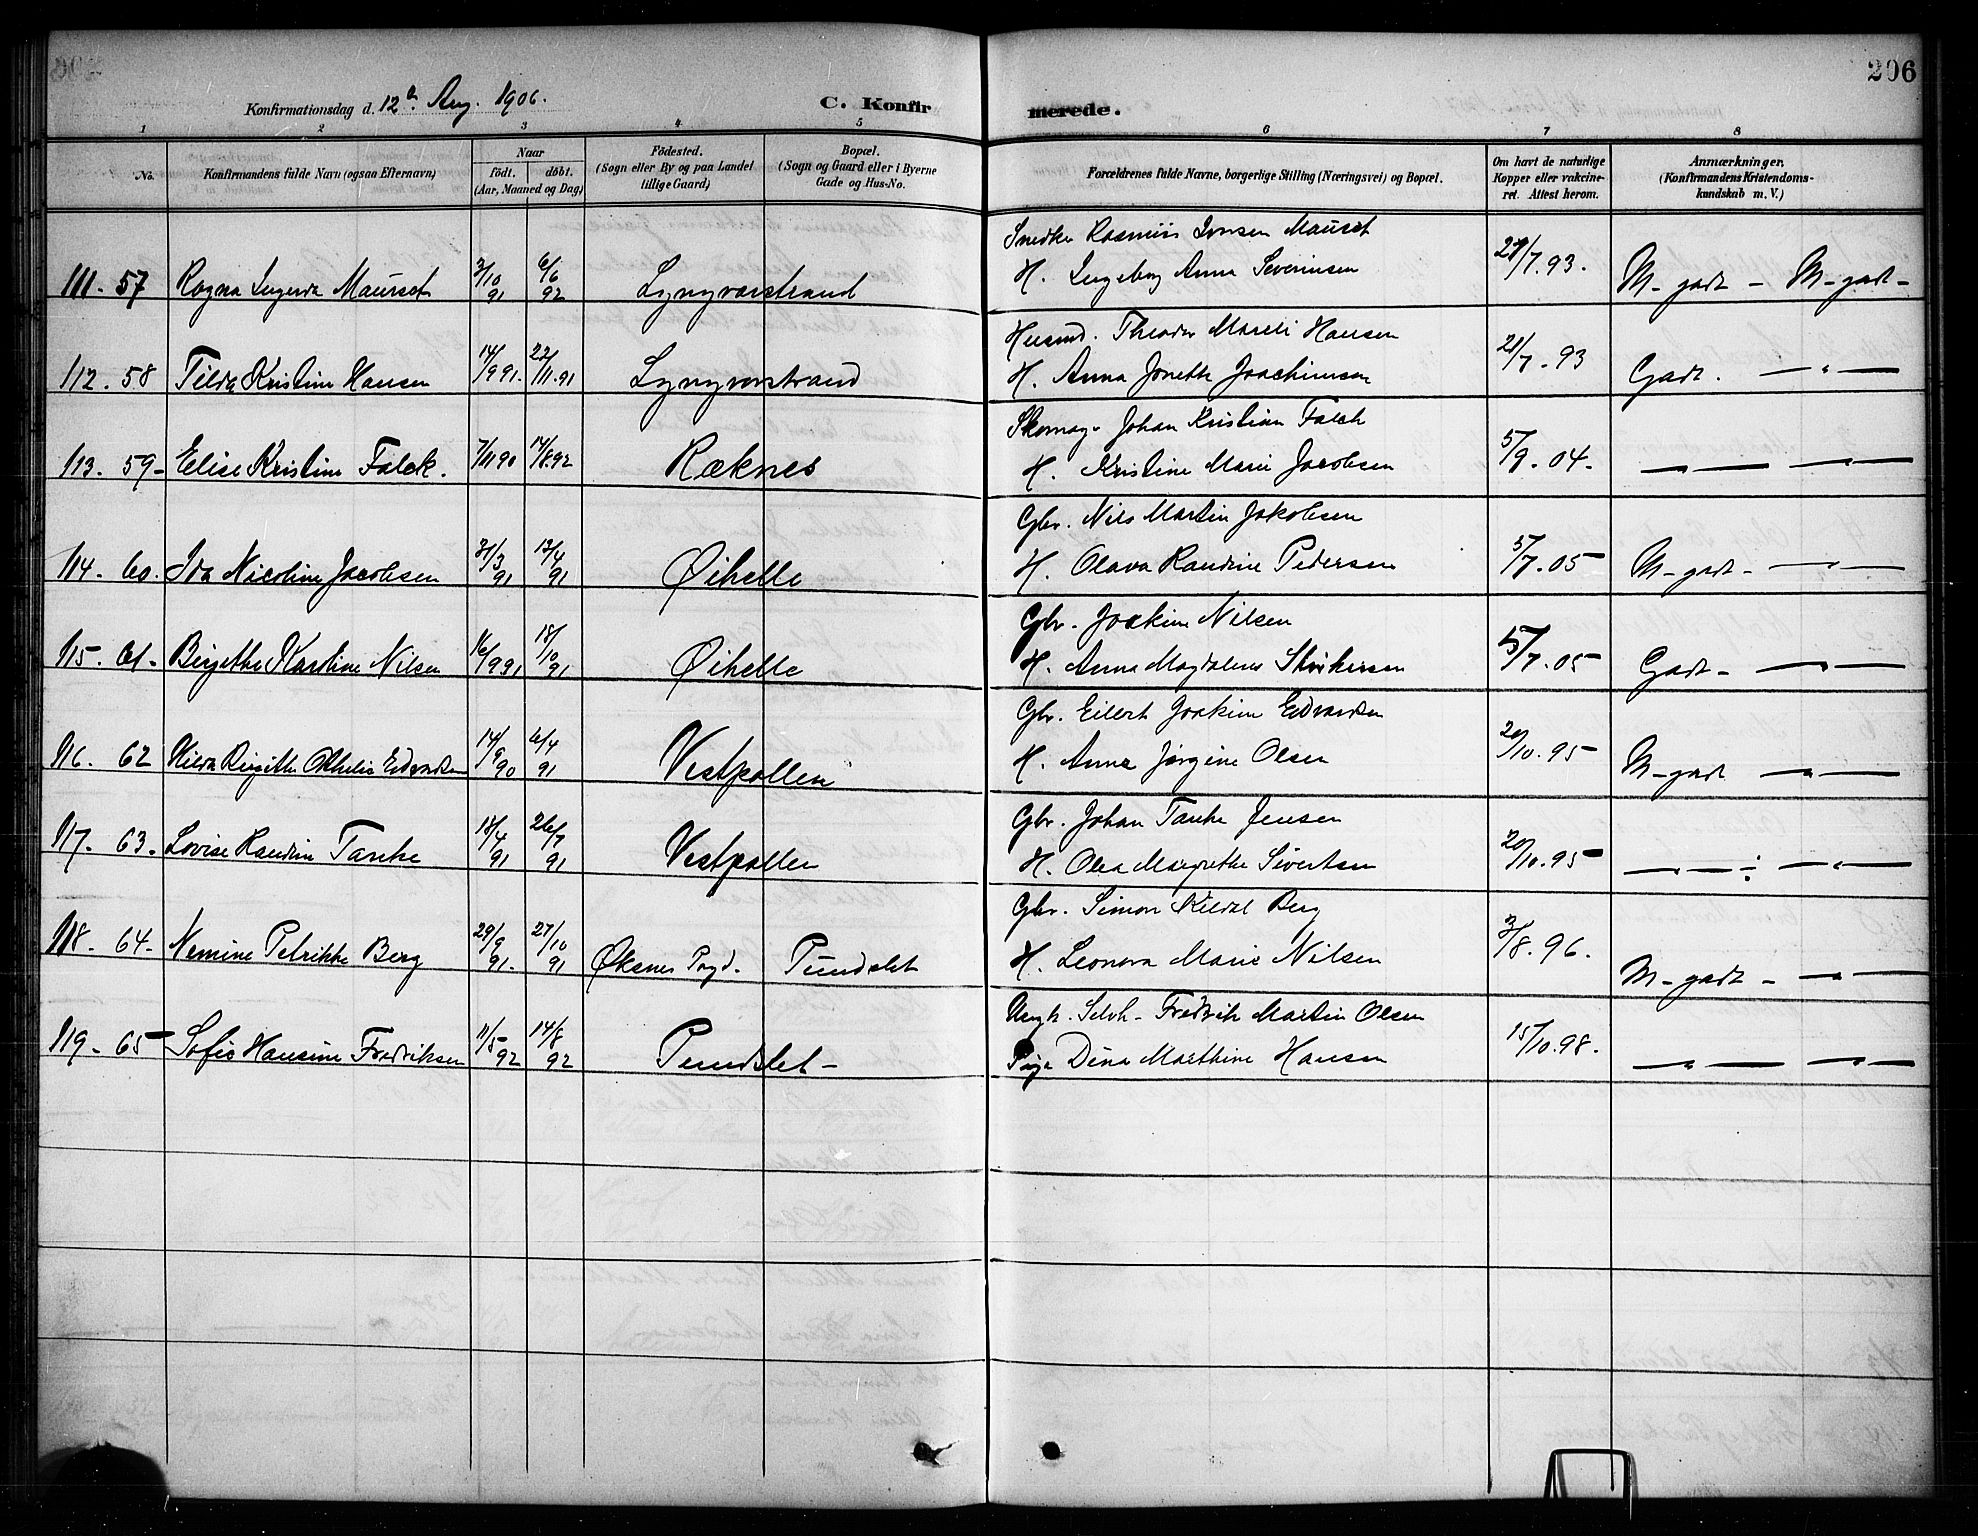 206
Konfirmationsdag d. 12te Aug. 1906.
C. Konfirmerede.
1 2 3 4 5 6 7 8
No.
Konfirmandens fulde Navn (ogsaa Efternavn)
Naar
födt. döbt.
(Aar, Maaned og Dag)
Födested.
(Sogn eller By og paa Landet
tillige Gaard)
Bopæl.
(Sogn og Gaard eller i Byerne
Gade og Hus-No.
Forældrenes fulde Navne, borgerlige Stilling (Næringsvei) og Bopæl.
Om havt de naturlige
Kopper eller vakcine-
ret. Attest herom.
Anmærkninger.
(Konfirmandens Kristendoms-
kundskab m. V.)
Snedker Rasmus Ionsen Maurset
111. 57 Ragna Ingerda Maurset 3/10 91 6/6 92 Lyngværstrand H. Ingeborg Anna Severinsen 29/7.93. M-godt - M-godt-
Husmd. Theodor Mareli Hansen
112. 58 Tilda Kristine Hansen 14/9 91. 22/11.91 Lyngværstrand H. Anna Jonette Joachimsen 21/7.93 Godt. — " —
Skomag. Johan Kristian Falch
113. 59- Elise Kristine Falck. 7/11 90 14/8.92 Ræknes H. Kristine Marie Jacobsen 5/9.04. — " — — " —
Gbr. Nils Martin Jakobsen
114. 60. Ida Nicoline Jacobsen 31/3 91 13/4 91 Øihelle H. Olava Randine Pedersen 5/7.05 M-godt- — " —
Gbr. Joakim Nilsen
115. 61- Birgithe Karoline Nilsen 16/9 91 18/10 91 Øihelle H. Anna Magdalena 5/7.05 Godt- — " —
Gbr. Eilert Joakim Edvardsen
116. 62 Hilda Birgitte Othelie Edvardsen 14/9 90 6/4 91 Vestpollen H. Anna Jørgine Olsen 20/10.95 M-godt — " —
Gbr. Johan Tanke Jensen
117. 63. Lovise Randine Tanke 18/4 91 26/7 91 Vestpollen H. Olea Margrethe Sivertsen 20/10.95 — — — " —
Gbr. Simon Kildal Berg
118. 64- Nemine Petrikke Berg 29/9 91. 27/10 91 Øksnes Prgd. Pundslet H. Leonora Marie Nilsen 3/8.96. M-godt - — " —
Ungk. Selvh- Fredrik Martin Olsen
119. 65 Sofie Hansine Fredriksen 11/5 92 14/8 92 Pundslet- Pige Dina Marthine Hansen 15/10.98. — " — — " —